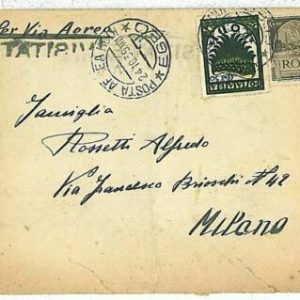 Per Via Aerea
POSTA AEREA
24.10.25
RO
Famiglia
Rossetti Alfredo
Via Francesco Brioschi Nº 42
Milano